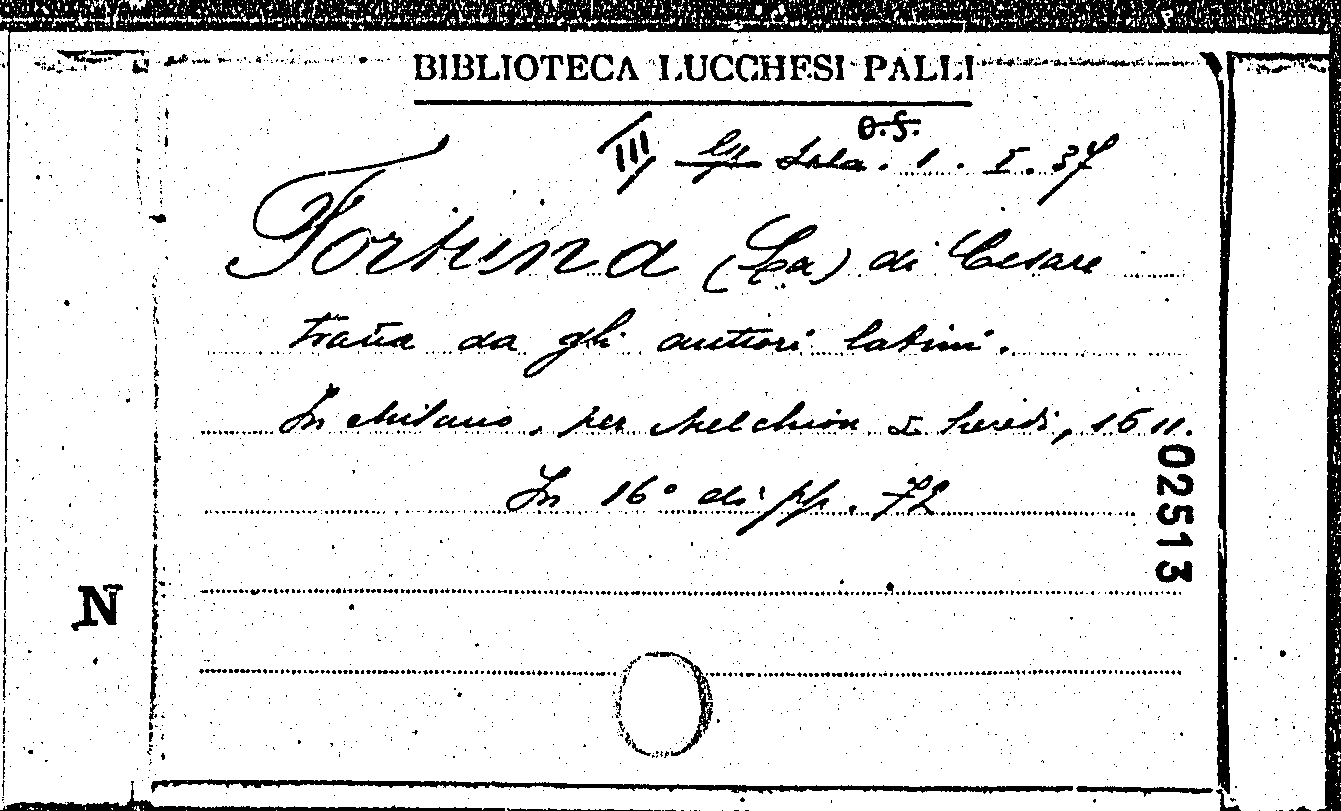 BIBLIOTECA LUCCHESI PALLI
O.S.
III Sala. 1. I. 37
Fortuna (La) di Cesare
tratta da gli auttori latini.
In Milano, per Melchion I heredi, 1611.
In 16° di pp. 72
02513
N